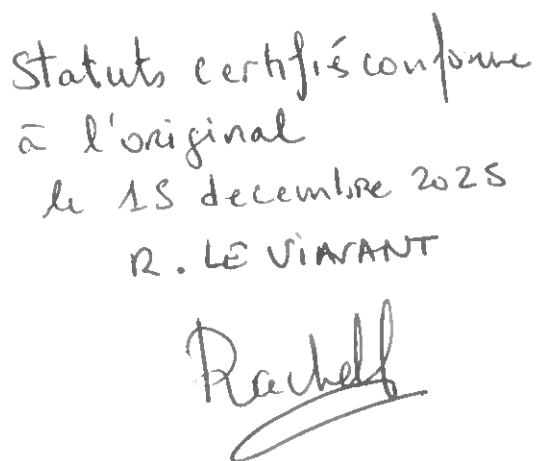 Statuts certifiés conforme
à l'original
le 15 decembre 2025
R. LE VIAVANT
Rachel